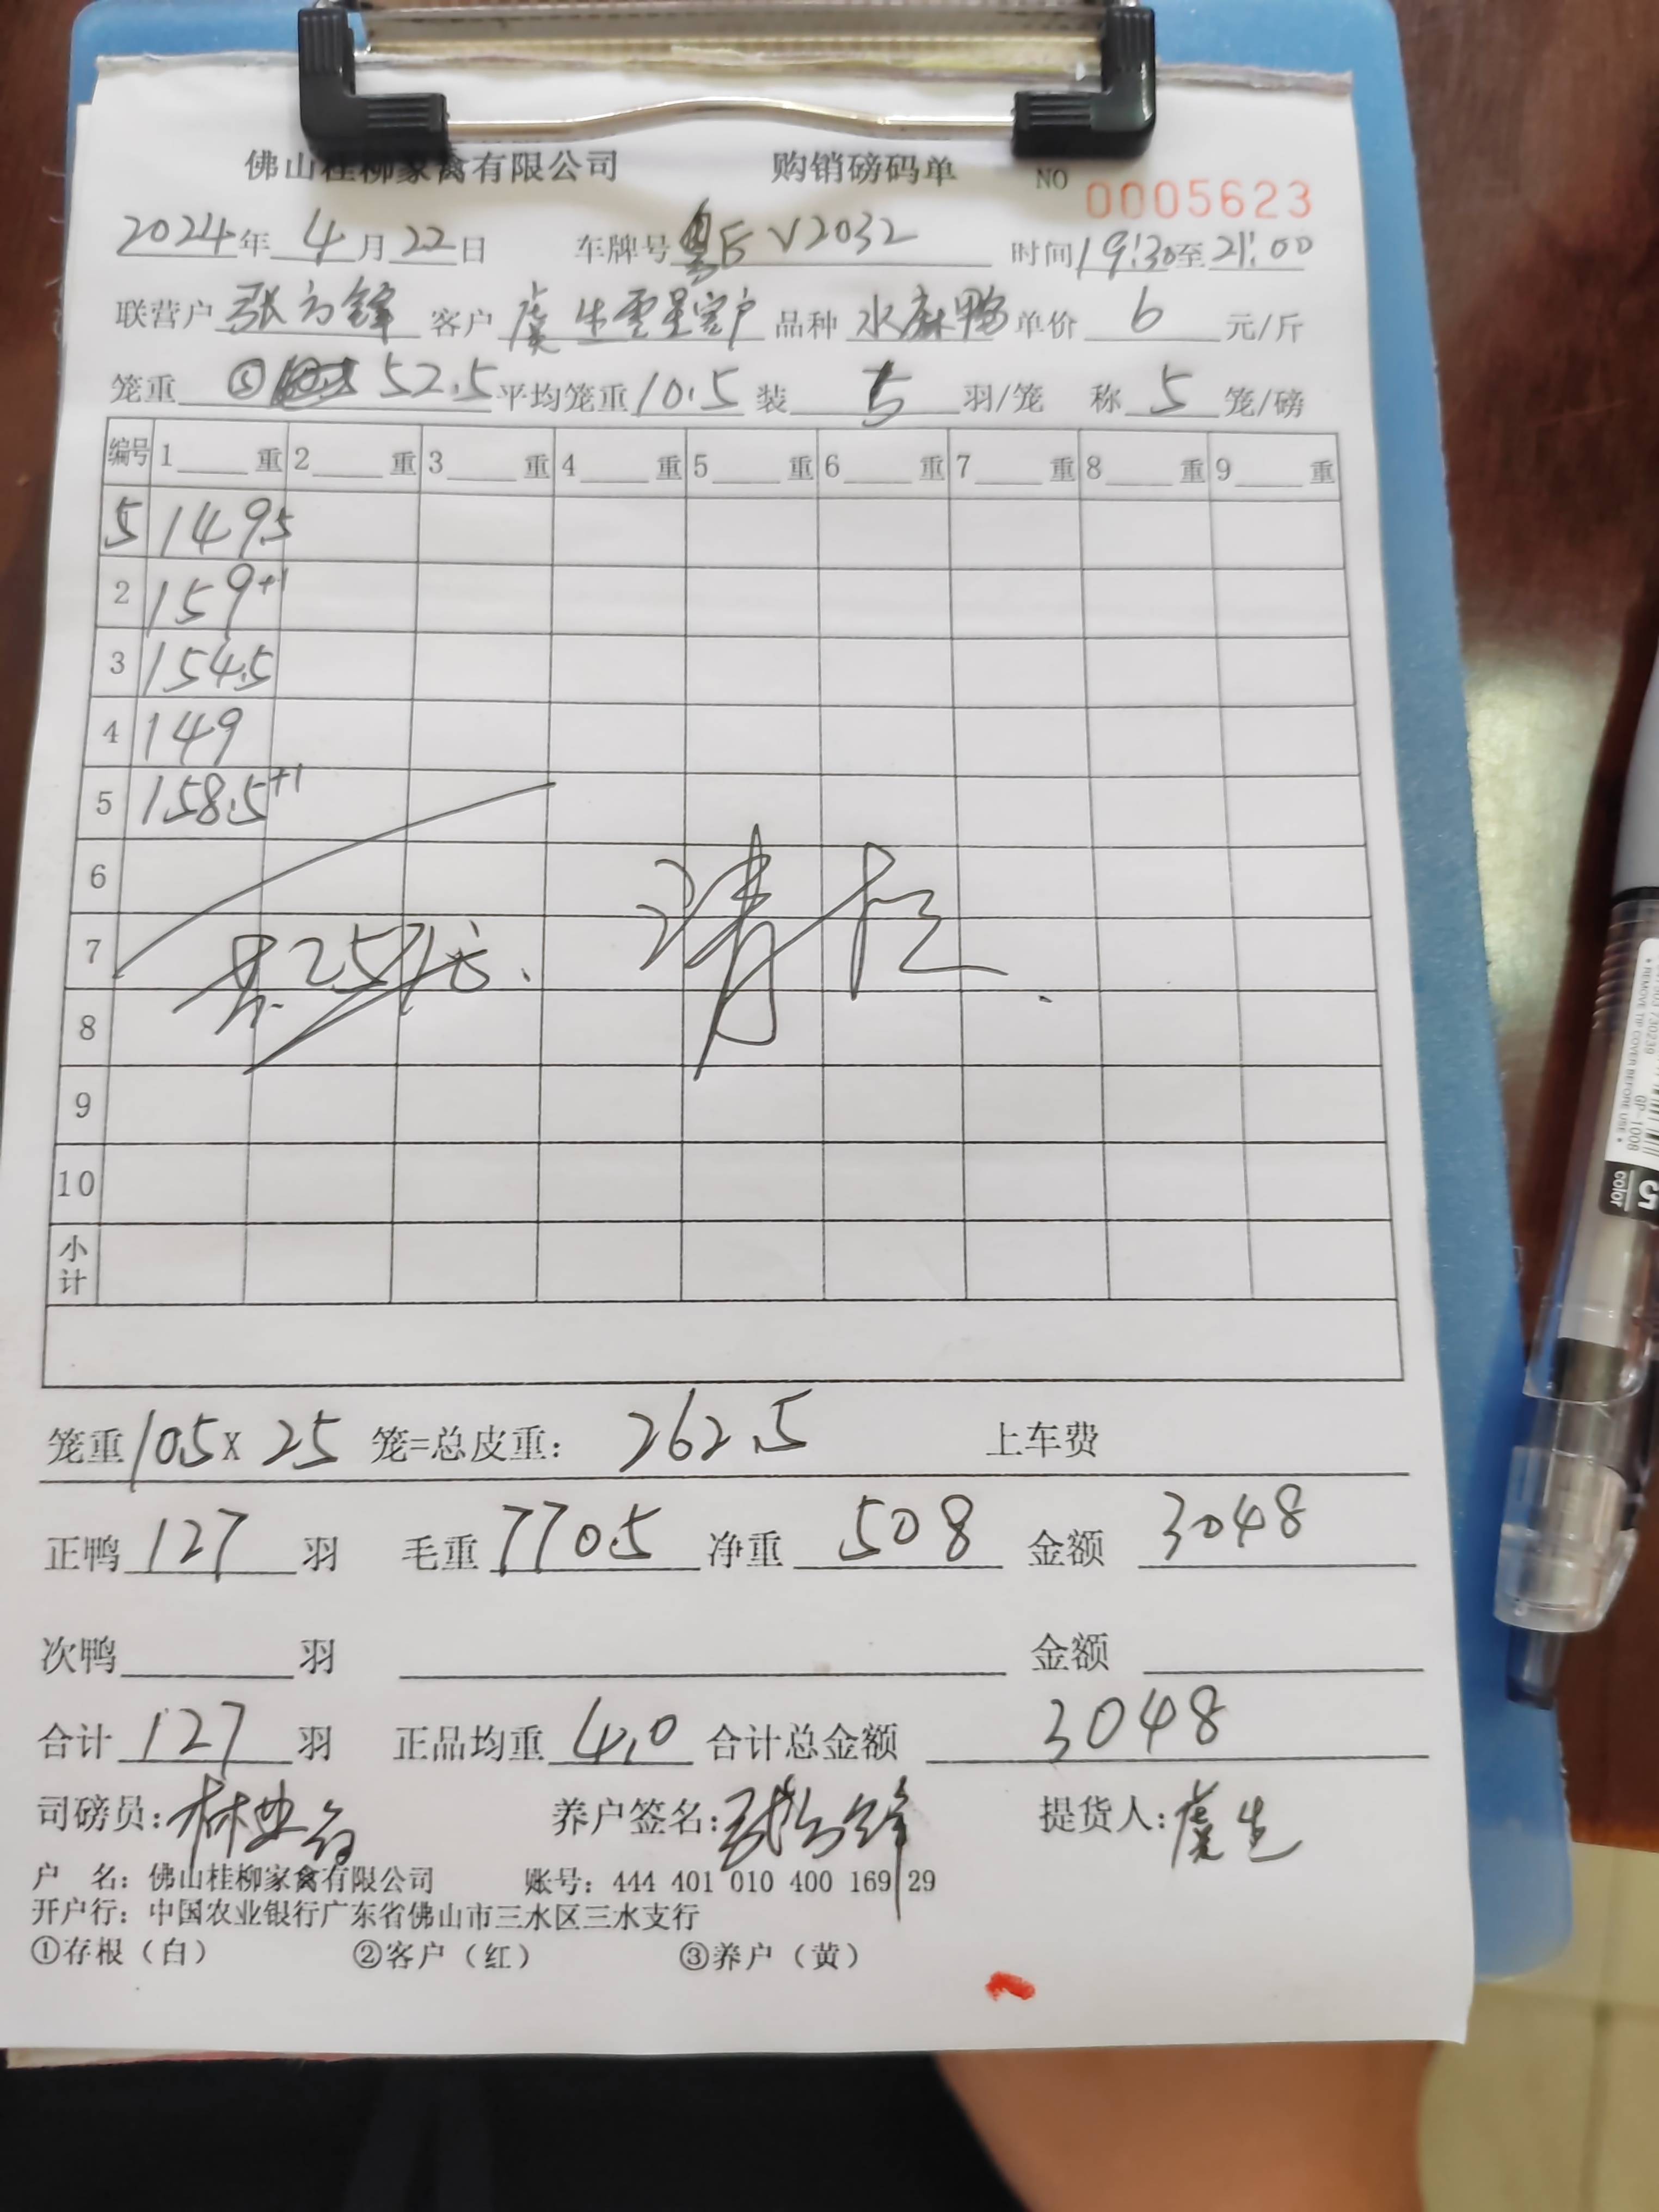 佛山桂柳家禽有限公司 购销磅码单 NO 0005623
2024年 4月22日 车牌号 粤E V2032 时间19:30至21:00
联营户 张方锋 客户 虞生零星客户 品种 水麻鸭 单价 6 元/斤
笼重 ⑤ 52.5 平均笼重 10.5 装 5 羽/笼 称 5 笼/磅
编号 1 重 2 重 3 重 4 重 5 重 6 重 7 重 8 重 9 重
5 149.5
2 159+1
3 154.5
4 149
5 158.5+1
6
7 共25笼. 清栏.
8
9
10
小计
笼重 10.5 X 25 笼=总皮重: 262.5 上车费
正鸭 127 羽 毛重 770.5 净重 508 金额 3048
次鸭 羽 金额
合计 127 羽 正品均重 4.0 合计总金额 3048
司磅员: 养户签名: 张方锋 提货人: 虞生
户 名: 佛山桂柳家禽有限公司 账号: 444 401 010 400 169 29
开户行: 中国农业银行广东省佛山市三水区三水支行
①存根（白） ②客户（红） ③养户（黄）
REMOVE TIP COVER BEFORE USE
GP-1008
5
color